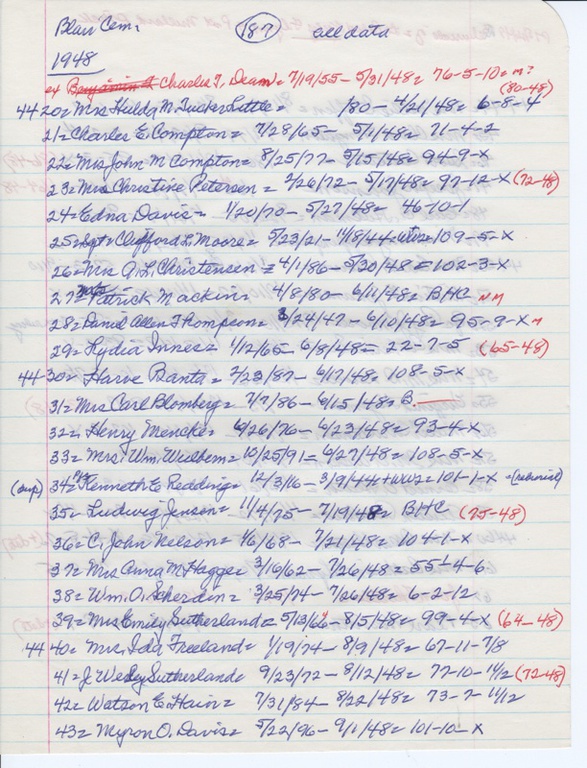 Blair Cem. (187) all data
1948
Charles T, Deam = 7/19/55 - 5/31/48 = 76-5-10 = m? (80-48)
44 20 = Mrs Hulda M. Tucker Little = /80 - 4/21/48 = 6-8-4
21 = Charles E Compton = 7/28/65 - 5/1/48 = 71-4-2
22 = Mrs John M Compton = 8/25/77 - 5/15/48 = 94-9-X
23 = Mrs Christine Petersen = 2/26/72 - 5/17/48 = 97-12-X (72-48)
24 = Edna Davis = 1/20/70 - 5/27/48 = 46-10-1
25 = Sgt = Clifford L. Moore = 5/23/21 - 11/18/44 = 109-5-X
26 = Mrs A. L. Christensen = 4/1/86 - 5/30/48 = 102-3-X
27 = Patrick Mackin = 4/8/80 - 6/11/48 = BHC NM
28 = David Allen Thompson = 3/24/47 - 6/10/48 = 95-9-X M
29 = Lydia Innes = 1/12/65 - 6/8/48 = 22-7-5 (65-48)
44-30 = Harve Banta = 2/23/87 - 6/17/48 = 108-5-X
31 = Mrs Carl Blomberg = 7/7/86 - 6/15/48 = B.
32 = Henry Mencke = 6/26/76 - 6/23/48 = 93-4-X
33 = Mrs. Wm. Wilhem = 10/25/91 = 6/27/48 = 108-5-X
(dup) 34 = Kenneth E Redding = 12/3/16 - 3/9/44 = WW2 = 101-1-X =
35 = Ludwig Jensen = 11/4/75 - 7/19/48 = BHC (75-48)
36 = C. John Nelson = 1/6/68 - 7/21/48 = 104-1-X
37 = Mrs Anna M. Hagge = 3/16/62 - 7/26/48 = 55-4-6
38 = Wm. O. Scherdin = 3/25/74 - 7/26/48 = 6-2-12
39 = Mrs Emily Sutherland = 5/13/64 - 8/5/48 = 99-4-X (64-48)
44 40 = Mrs. Ida Freeland = 1/19/74 - 8/9/48 = 67-11-7/8
41 = J. Wesley Sutherland = 9/23/72 - 8/12/48 = 77-10-11/12 (72-48)
42 = Watson E. Hain = 7/31/84 - 8/22/48 = 73-7-11/12
43 = Myron O. Davis = 5/22/96 - 9/1/48 = 101-10-X